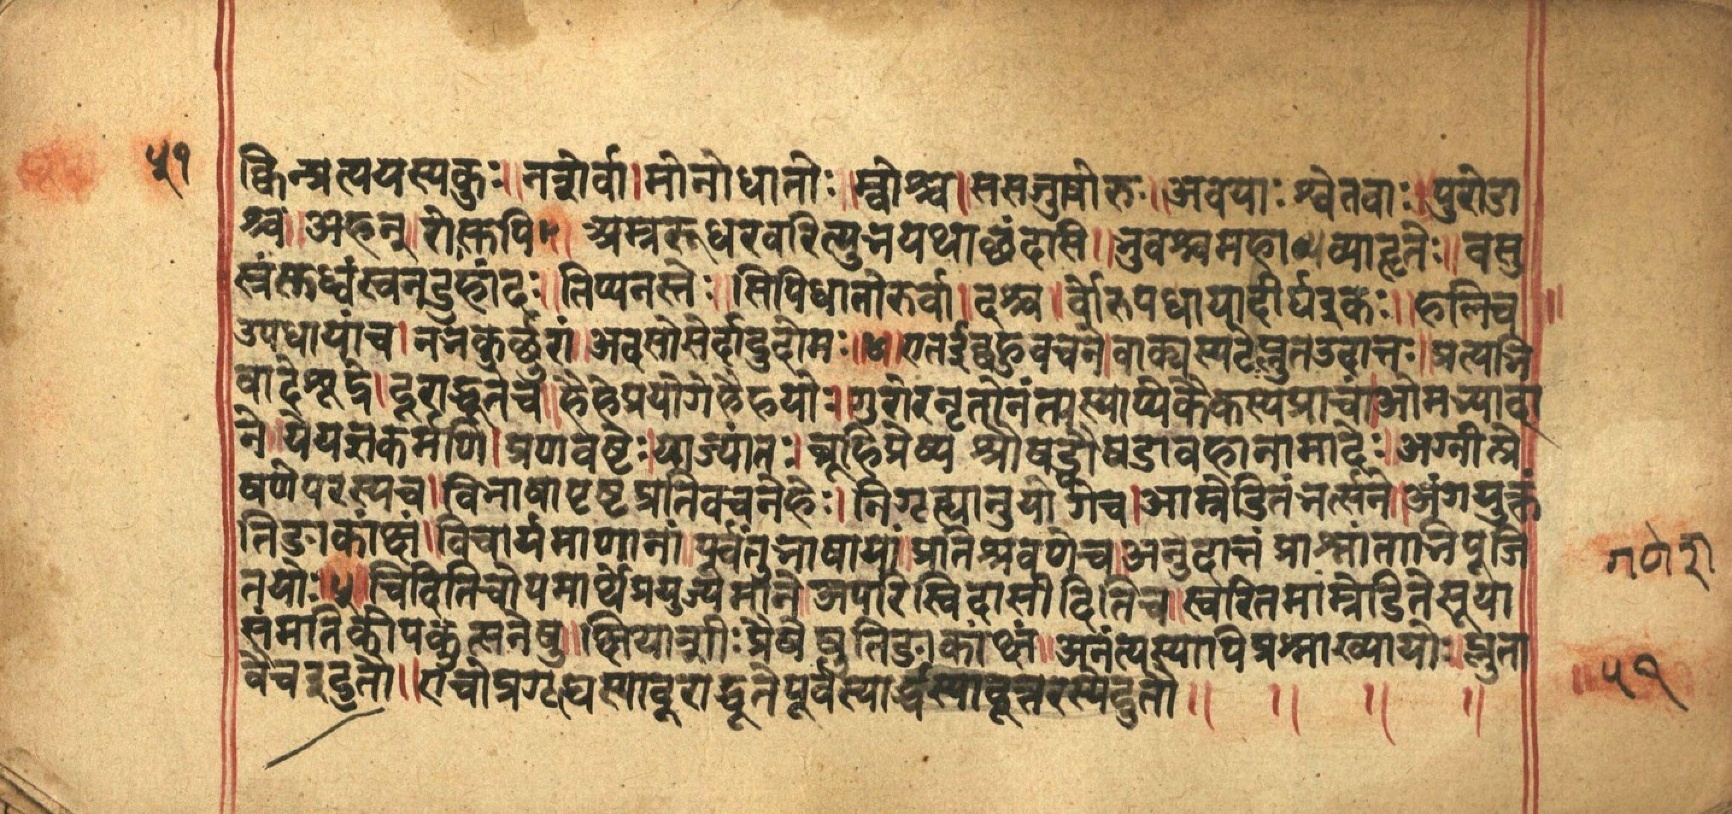 ५१
क्विन्प्रत्ययस्यकुः॥नशेर्वा।मोनोधातोः॥म्वोश्च॥ससजुषोरुः॥अवयाः श्वेतवाः॥पुरोडा
श्च॥अहन्॥रोःसुपि॥४॥ अम्नरूधरवरित्युभयथाछंदसि॥भुवश्चमहाव्याहृतेः॥वसु
स्रंसुध्वंस्वनडुहांदः॥तिप्यनस्तेः॥सिपिधातोरुर्वा॥दश्च॥र्वोरुपधायादीर्घइकः॥हलिच॥
उपधायांच।नभकुर्छुरां॥अदसोसेर्दादुदोमः॥५॥एतईद्बहुवचने।वाक्यस्यटेःप्लुतउदात्तः॥प्रत्यभि
वादेशूद्रे॥दूराद्धूतेच॥हैहेप्रयोगेहैहयोः॥गुरोरनृतोनंत्यस्याप्येकैकस्यप्राचां।ओमभ्यादा
ने॥येयज्ञकर्मणि।प्रणवष्टेः।याज्यांतः॥ब्रूहिप्रेष्य श्रौषड्वौषडावहानामादेः॥अग्नीत्प्रे
षणेपरस्यच॥विभाषापृष्टप्रतिवचनेहेः॥निगृह्यानुयोगेच।आम्रेडितंभर्त्सने॥अंगयुक्तं
तिङाकांक्षं॥विचार्यमाणानां॥पूर्वंतुभाषायां॥प्रतिश्रवणेच।अनुदात्तं प्राश्नांताभिपूजि
तयोः॥५॥चिदितिचोपमार्थेप्रयुज्यमाने॥उपरिस्विदासीदितिच॥स्वरितमाम्रेडितेसूया
संमतिकोपकुत्सनेषु॥क्षियाशीःप्रैषेषुतिङाकांक्षं॥अनंत्यस्यापिप्रश्नाख्यानयोः॥प्लुता
वैचइदुतौ॥एचोप्रगृह्यस्यादूराद्धूतेपूर्वस्यार्द्धस्यादुत्तरस्येदुतौ॥ ॥ ॥ ॥
५१